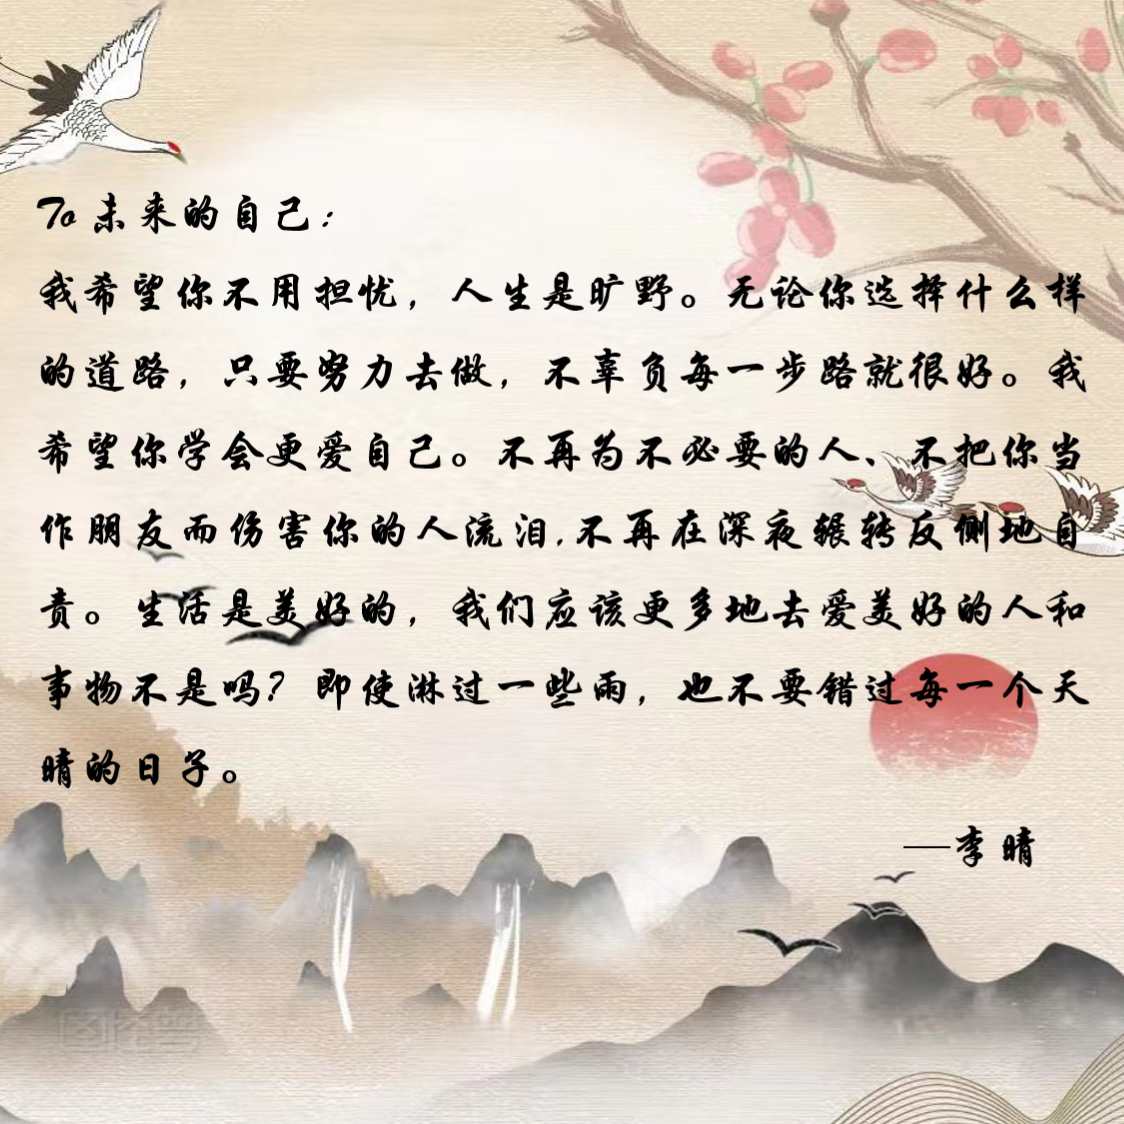 To 未来的自己：
我希望你不用担忧，人生是旷野。无论你选择什么样
的道路，只要努力去做，不辜负每一步路就很好。我
希望你学会更爱自己。不再为不必要的人、不把你当
作朋友而伤害你的人流泪,不再在深夜辗转反侧地自
责。生活是美好的，我们应该更多地去爱美好的人和
事物不是吗？即使淋过一些雨，也不要错过每一个天
晴的日子。
—李晴